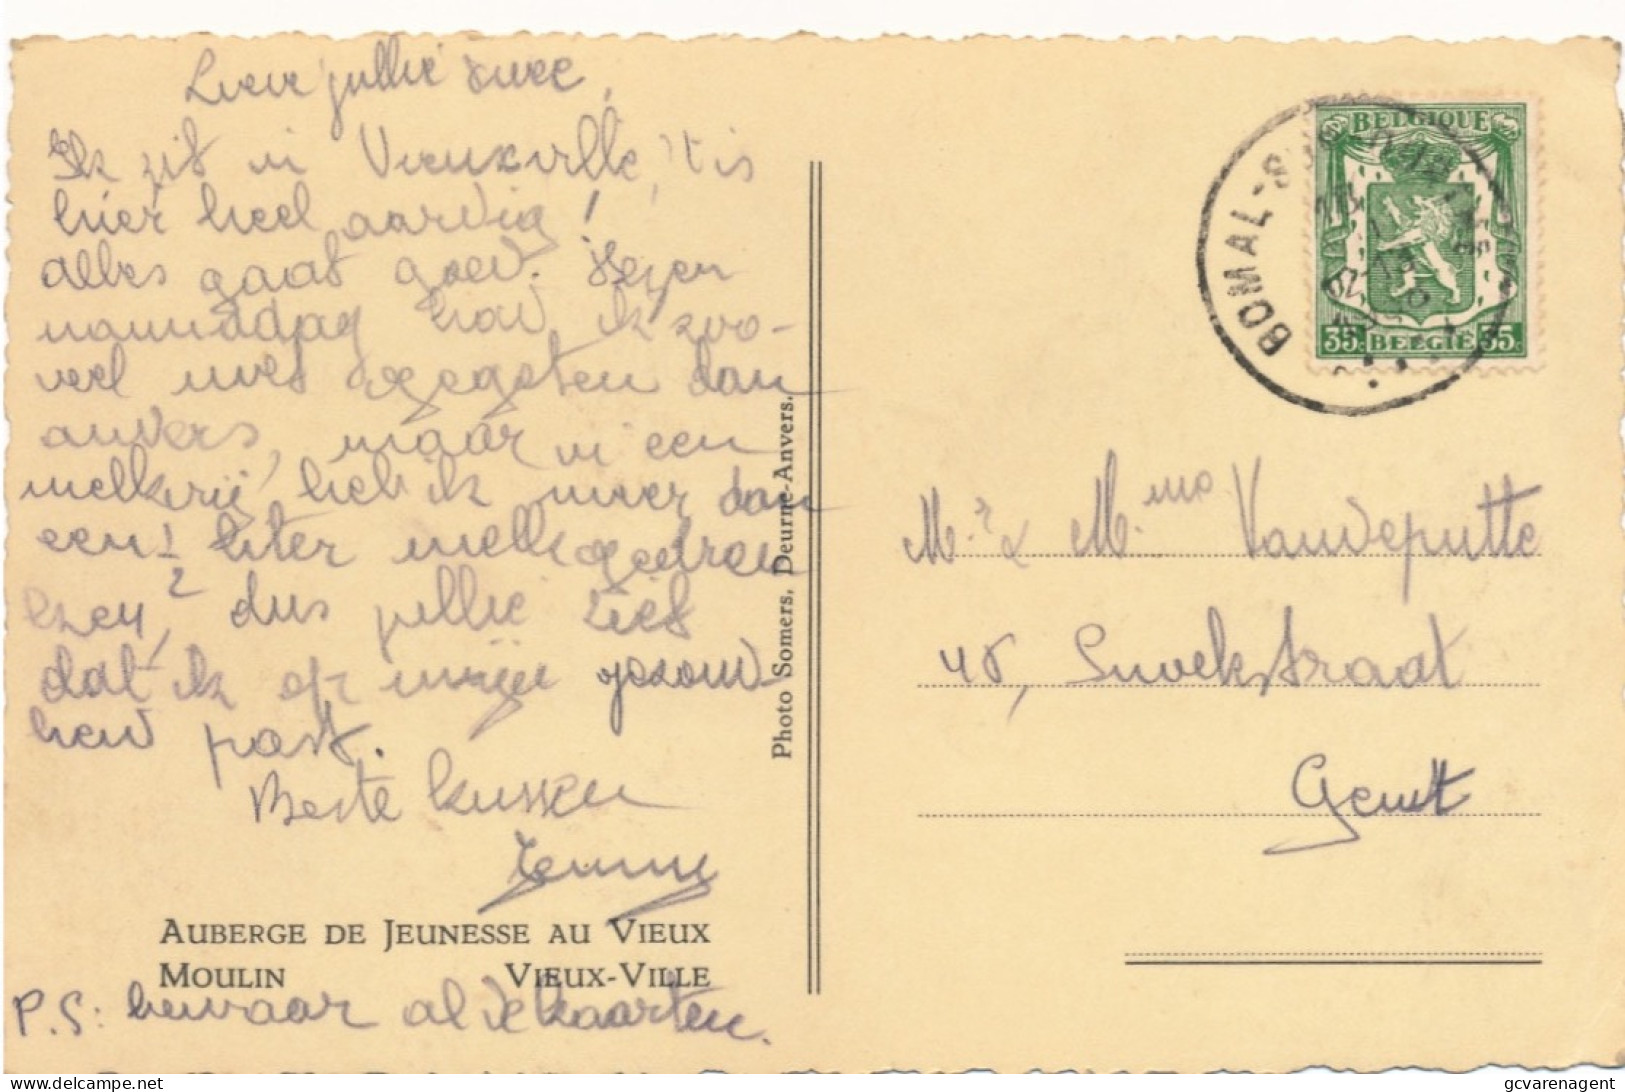 Lieve jullie twee,
Ik zit in Vieuxville, 't is
hier heel aardig!
alles gaat goed.
namiddag had ik zoo-
veel niet gegeten dan
anders, maar in een
melkerij heb ik meer dan
een 1/2 liter melk gedron
ken, dus jullie ziet
dat ik op mijne gezond-
heid past.
Beste kussen
Jenny
AUBERGE DE JEUNESSE AU VIEUX
MOULIN VIEUX-VILLE
P.S: bewaar al de kaarten.
Photo Somers, Deurne-Anvers.
BELGIQUE
35c BELGIË 35c
BOMAL-S
Mr & Mme Vandeputte
48, Snoekstraat
Gent
gcvarenagent